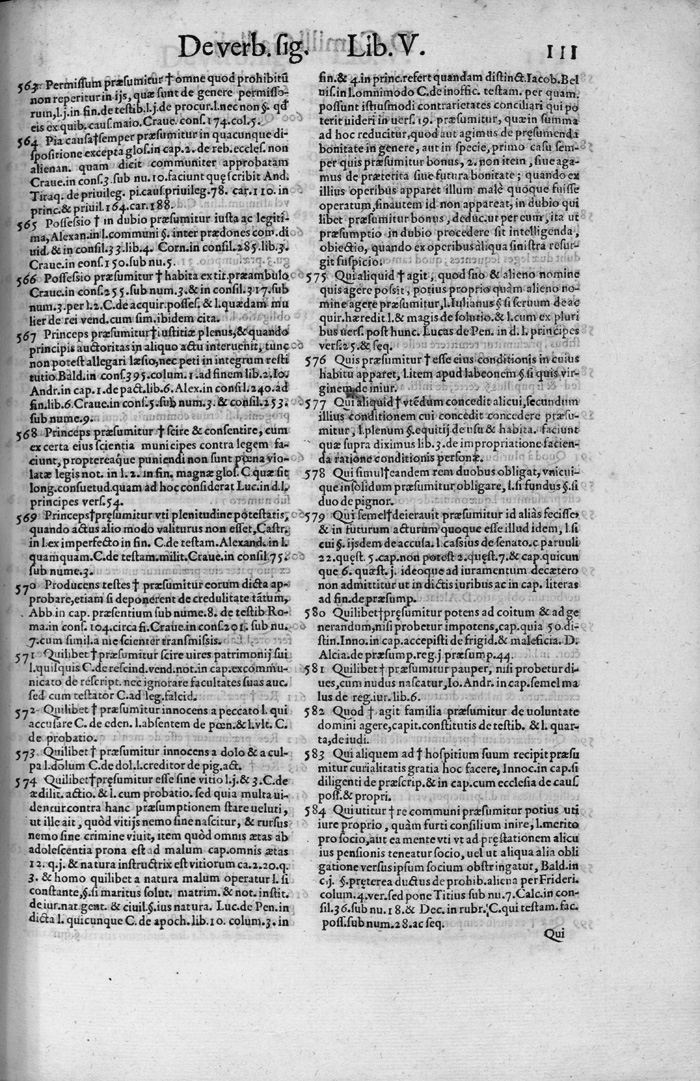 De verb. sig. Lib. V. 111
563 Permissum præsumitur † omne quod prohibitũ
non reperitur in ijs, quæ sunt de genere permisso-
rum, l.j. in fin. de testib. l.j. de procur. l. nec non §. qđ
eis ex quib. caus. maio. Craue. cons. 174. col. 5.
564 Pia causa † semper præsumitur in quacunque di-
spositione excepta glos. in cap. 2. de reb. eccles. non
alienan. quam dicit communiter approbatam
Craue. in cons. 3. sub nu. 10. faciunt quę scribit And.
Tiraq. de priuileg. pi. caus. priuileg. 78. car. 110. in
princ. & priuil. 164. car. 188.
565 Possessio † in dubio præsumitur iusta ac legiti-
ma, Alexan. in l. communi §. inter prædones com. di
uid. & in consil. 33. lib. 4. Corn. in consil. 285. lib. 3.
Craue. in cons. 150. sub nu. 5.
566 Possessio præsumitur † habita ex tit. præambulo
Craue. in cons. 255. sub num. 3. & in consil. 317. sub
num. 3. per l. 2. C. de acquir. posses. & l. quædam mu
lier de rei vend. cum sim. ibidem cita.
567 Princeps præsumitur † iustitiæ plenus, & quando
principis auctoritas in aliquo actu interuenit, tunc
non potest allegari læsio, nec peti in integrum resti
tutio. Bald. in cons. 395. colum. 1. ad finem lib. 2. Io.
Andr. in cap. 1. de pact. lib. 6. Alex. in consil. 240. ad
fin. lib. 6. Craue. in cons. 5. sub num. 3. & consil. 253.
sub nume. 9.
568 Princeps præsumitur † scire & consentire, cum
ex certa eius scientia municipes contra legem fa-
ciunt, proptereaq́ue puniendi non sunt pœna vio-
latæ legis not. in l. 2. in fin. magnæ glos. C. quæ sit
long. consuetud. quam ad hoc considerat Luc. in d. l.
principes vers. 54.
569 Princeps † pręsumitur vti plenitudine potestatis,
quando actus alio modo valiturus non esset, Castr.
in l. ex imperfecto in fin. C. de testam. Alexand. in l.
quamquam. C. de testam. milit. Craue. in consil. 75.
sub nume. 3.
570 Producens testes † præsumitur eorum dicta ap-
probare, etiam si deponerent de credulitate tãtum,
Abb. in cap. præsentium sub nume. 8. de testib. Ro-
ma. in cons. 104. circa fi. Craue. in cons. 201. sub nu.
7. cum simil. a nie scienter transmissis.
571 Quilibet † præsumitur scire uires patrimonij sui
l. quisquis C. de rescind. vend. not. in cap. excommu-
nicato de rescript. nec ignorare facultates suas auc.
sed cum testator C. ad leg. falcid.
572 Quilibet † præsumitur innocens a peccato l. qui
accusare C. de eden. l. absentem de pœn. & l. vlt. C.
de probatio.
573 Quilibet † præsumitur innocens a dolo & a cul-
pa l. dolum C. de dol. l. creditor de pig. act.
574 Quilibet † pręsumitur esse sine vitio l. j. & 3. C. de
ædilit. actio. & l. cum probatio. sed quia multa ui-
dentur contra hanc præsumptionem stare ueluti,
ut ille ait, quòd vitijs nemo sine nascitur, & rursus
nemo sine crimine viuit, item quòd omnis ætas ab
adolescentia prona est ad malum cap. omnis ætas
12. q. j. & natura instructrix est vitiorum ca. 2. 20. q.
3. & homo quilibet a natura malum operatur l. si
constante, §. si maritus solut. matrim. & not. instit.
de iur. nat. gent. & ciuil. §. ius natura. Luc. de Pen. in
dicta l. quicunque C. de apoch. lib. 10. colum. 3. in
fin. & 4. in princ. refert quandam distinct. Iacob. Bel
uis. in l. omnimodo C. de inoffic. testam. per quam.
possunt istiusmodi contrarietates conciliari qui po
terit uideri in uers. 19. præsumitur, quæ in summa
ad hoc reducitur, quod aut agimus de pręsumenda
bonitate in genere, aut in specie, primo casu sem-
per quis præsumitur bonus, 2. non item, siue aga-
mus de præterita siue futura bonitate; quando ex
illius operibus apparet illum malè quoque fuisse
operatum, sin autem id non appareat, in dubio qui
libet præsumitur bonus, deduc. ut per eum, ita ut
præsumptio in dubio procedere sit intelligenda,
obiectio, quando ex operibus aliqua sinistra resur-
git suspicio.
575 Qui aliquid † agit, quod suo & alieno nomine
quis agere possit, potius proprio quàm alieno no-
mine agere præsumitur, l. Iulianus §. si seruum de ac
quir. hæredit. l. & magis de solutio. & l. cum ex pluri
bus uers. post hunc. Lucas de Pen. in d. l. principes
vers. 25. & seq.
576 Quis præsumitur † esse eius conditionis in cuius
habitu apparet, l. item apud labeonem §. si quis vir-
ginem de iniur.
577 Qui aliquid † vtẽdum concedit alicui, secundum
illius conditionem cui concedit concedere præsu-
mitur, l. plenum §. equitij de usu & habita. faciunt
quæ supra diximus lib. 3. de impropriatione facien-
da ratione conditionis personæ.
578 Qui simul † eandem rem duobus obligat, vnicui-
que in solidum præsumitur obligare, l. si fundus §. si
duo de pignor.
579 Qui semel † deierauit præsumitur id aliàs fecisse,
& in futurum acturum quoque esse illud idem, l. si
cui §. ijsdem de accusa. l. cassius de senato. c. paruuli
22. quest. 5. cap. non potest 2. quęst. 7. & cap. quicun
que 6. quæst. j. ideoque ad iuramentum decætero
non admittitur ut in dictis iuribus ac in cap. literas
ad fin. de præsump.
580 Quilibet † pręsumitur potens ad coitum & ad ge
nerandum, nisi probetur impotens, cap. quia 50. di-
stin. Inno. in cap. accepisti de frigid. & maleficia. D.
Alcia. de præsump. reg. j. præsump. 44.
581 Quilibet † præsumitur pauper, nisi probetur di-
ues, cum nudus nascatur, Io. Andr. in cap. semel ma
lus de reg. iur. lib. 6.
582 Quod † agit familia præsumitur de uoluntate
domini agere, capit. constitutis de testib. & l. quar-
ta, de iudi.
583 Qui aliquem ad † hospitium suum recipit præsu
mitur curialitatis gratia hoc facere, Innoc. in cap. si
diligenti de præscrip. & in cap. cum ecclesia de caus.
poss. & propri.
584 Qui utitur † re communi præsumitur potius uti
iure proprio, quàm furti consilium inire, l. merito
pro socio, aut ea mente vti vt ad pręstationem alicu
ius pensionis teneatur socio, uel ut aliqua alia obli
gatione versus ipsum socium obstringatur, Bald. in
c. j. §. pręterea ductus de prohib. aliena. per Frideri.
colum. 4. ver. sed pone Titius sub nu. 7. Calc. in con-
sil. 36. sub nu. 18. & Dec. in rubr. C. qui testam. fac.
poss. sub num. 28. ac seq.
Qui